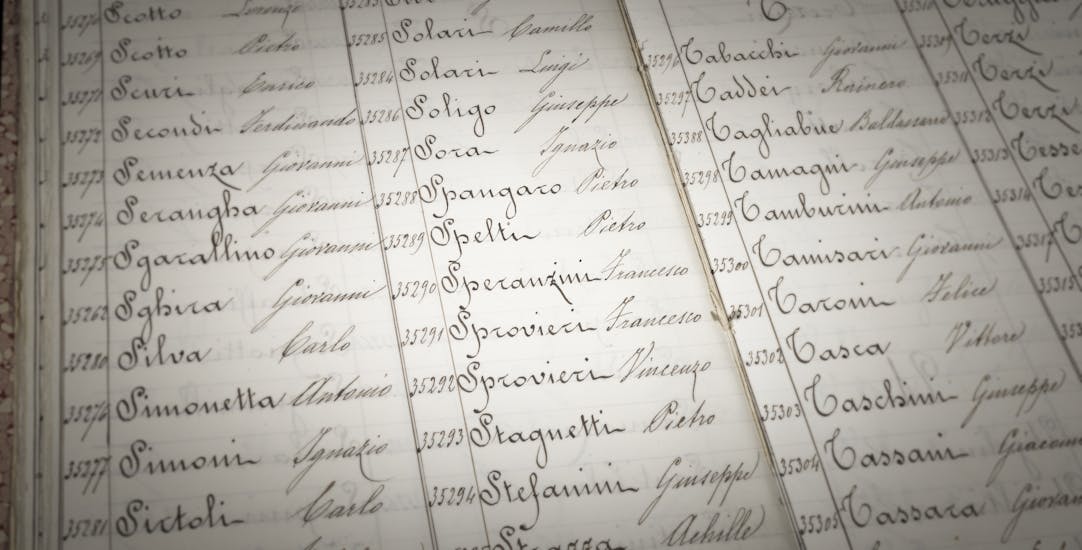 35270 Scotto Lorenzo
35269 Scotto Pietro
35271 Scuri Enrico
35272 Secondi Ferdinando
35273 Semenza Giovanni
35274 Serangha Giovanni
35275 Sgarallino Giovanni
35262 Sghira Giovanni
35280 Silva Carlo
35276 Simonetta Antonio
35277 Simoni Ignazio
35281 Sirtoli Carlo
35283
35285 Solari Camillo
35284 Solari Luigi
35286 Soligo Giuseppe
35287 Sora Ignazio
35288 Spangaro Pietro
35289 Spelti Pietro
35290 Speranzini Francesco
35291 Sprovieri Francesco
35292 Sprovieri Vincenzo
35293 Stagnetti Pietro
35294 Stefanini Giuseppe
Strazza Achille
T
35296 Tabacchi Giovanni
35297 Taddei Rainero
35388 Tagliabue Baldassare
35298 Tamagni Giuseppe
35299 Tamburini Antonio
35300 Tamisari Giovanni
35301 Taroni Felice
35302 Tasca Vittore
35303 Taschini Giuseppe
35304 Tassani Giacomo
35305 Tassara Giovan
35310
35309 Terzi
35311 Terzi
35312 Terzi
35313 Tesse
35314 Te
35317 T
35315